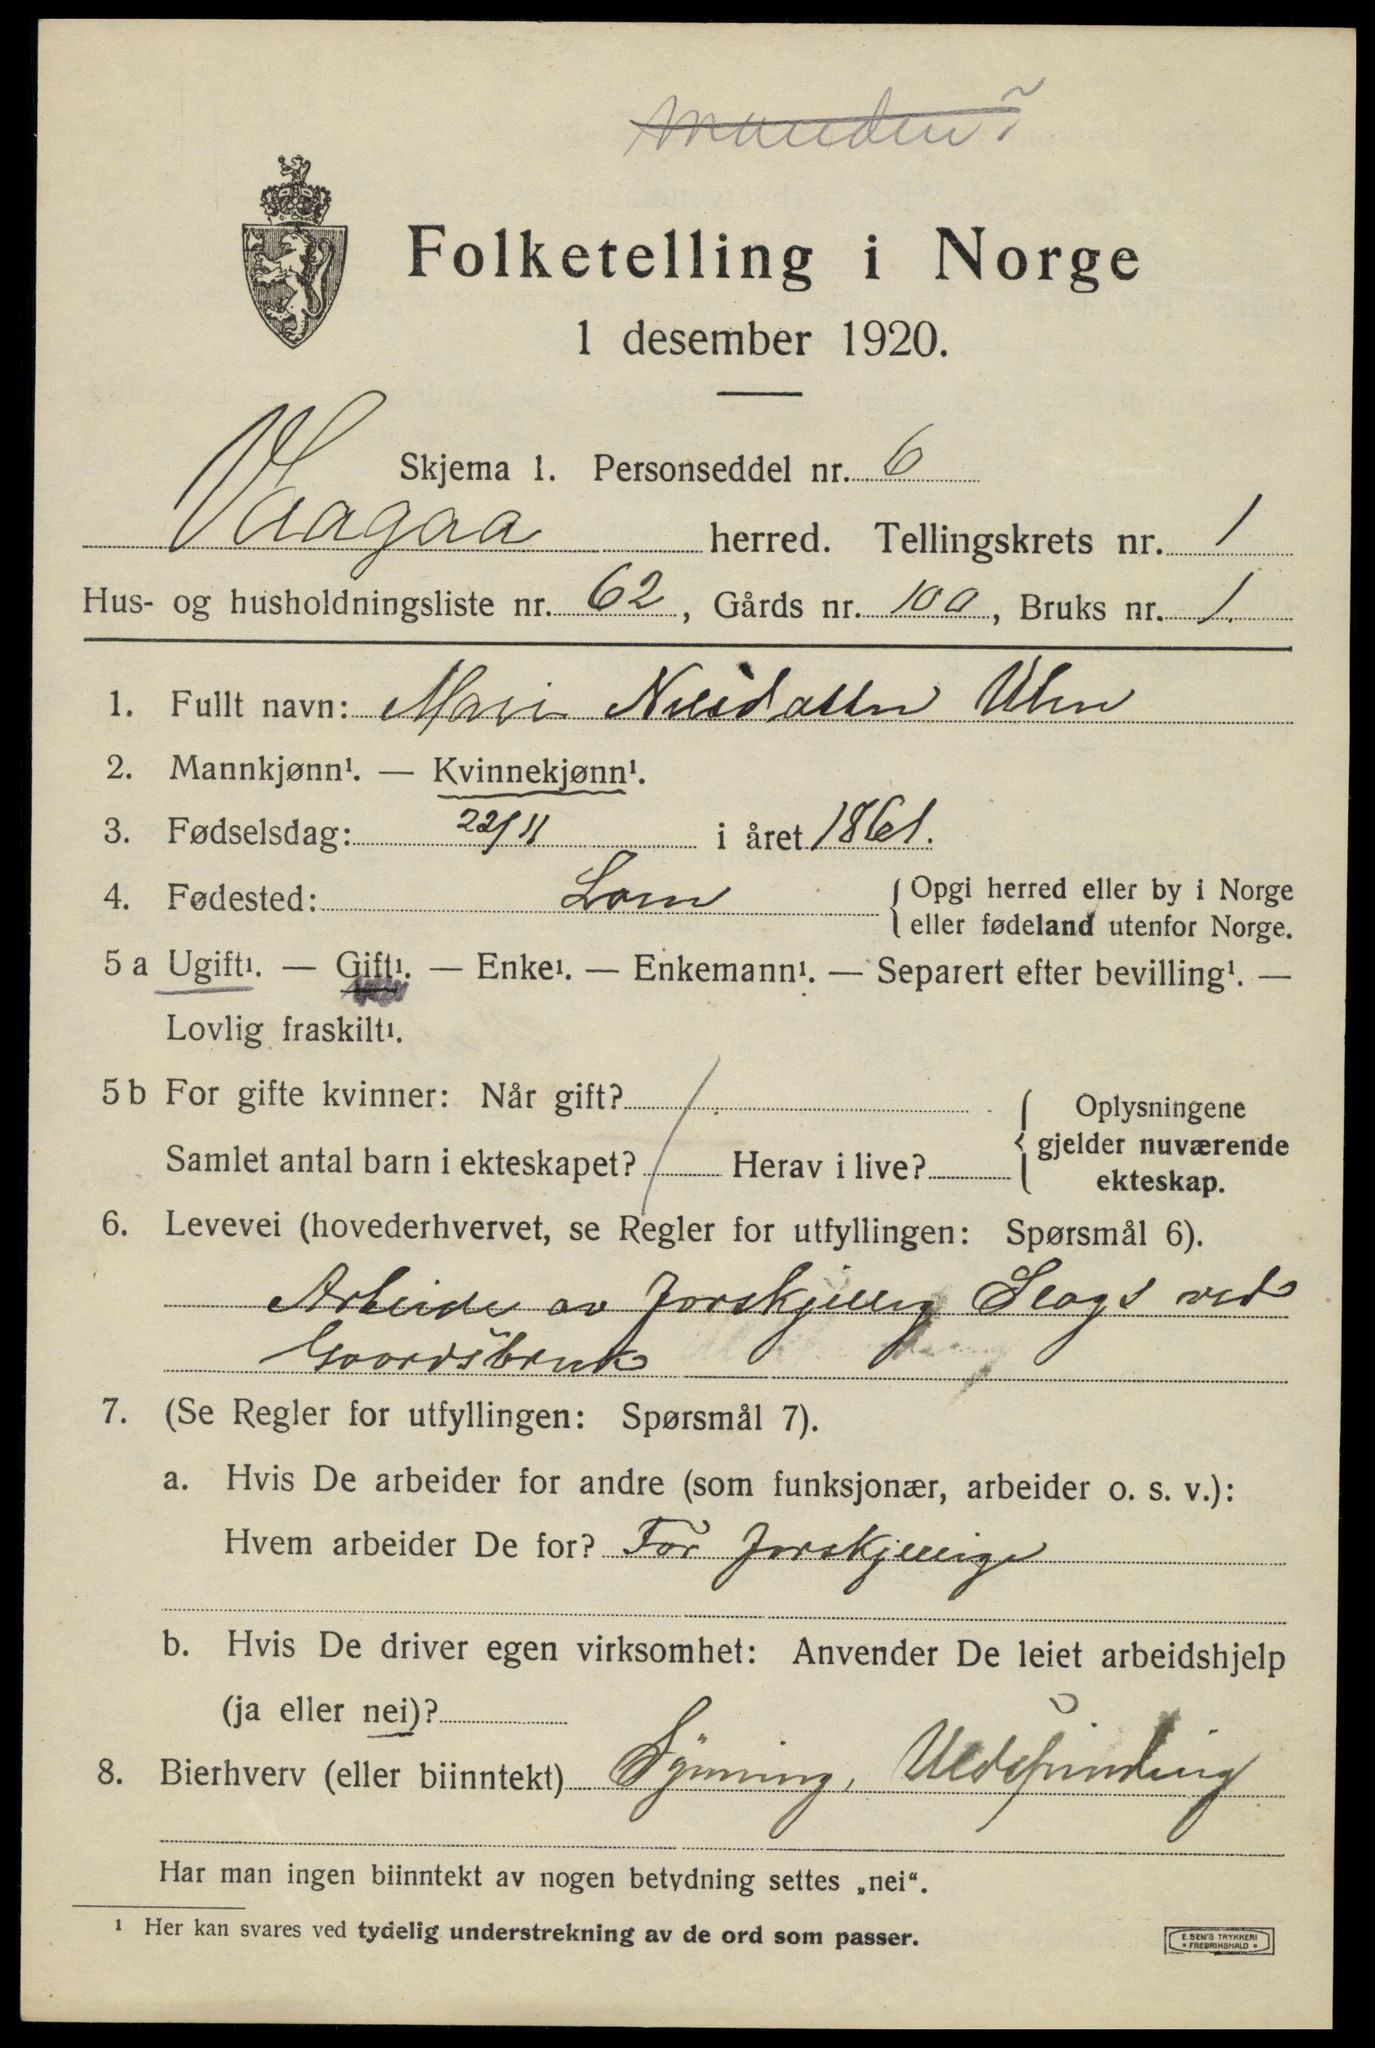 Manden?
Folketelling i Norge
1 desember 1920.
Skjema 1. Personseddel nr. 6
Vaagaa herred. Tellingskrets nr. 1
Hus- og husholdningsliste nr. 62, Gårds nr. 100, Bruks nr. 1.
1. Fullt navn: Mari Nilsdatter Ulen
2. Mannkjønn¹. — Kvinnekjønn¹.
3. Fødselsdag: 22/11 i året 1861.
4. Fødested: Lom { Opgi herred eller by i Norge
eller fødeland utenfor Norge.
5 a Ugift¹. — Gift¹. — Enke¹. — Enkemann¹. — Separert efter bevilling¹. —
Lovlig fraskilt¹.
5 b For gifte kvinner: Når gift? { Oplysningene
gjelder nuværende
Samlet antal barn i ekteskapet? Herav i live?
ekteskap.
6. Levevei (hovederhvervet, se Regler for utfyllingen: Spørsmål 6).
Arbeide av forskjellig Slags ved
Gaardsbruk
7. (Se Regler for utfyllingen: Spørsmål 7).
a. Hvis De arbeider for andre (som funksjonær, arbeider o. s. v.):
Hvem arbeider De for? For forskjellige
b. Hvis De driver egen virksomhet: Anvender De leiet arbeidshjelp
(ja eller nei)?
8. Bierhverv (eller biinntekt) Syning, Uldspinding
Har man ingen biinntekt av nogen betydning settes „nei“.
¹ Her kan svares ved tydelig understrekning av de ord som passer.
E. SEM'S TRYKKERI
• FREDRIKSHALD •